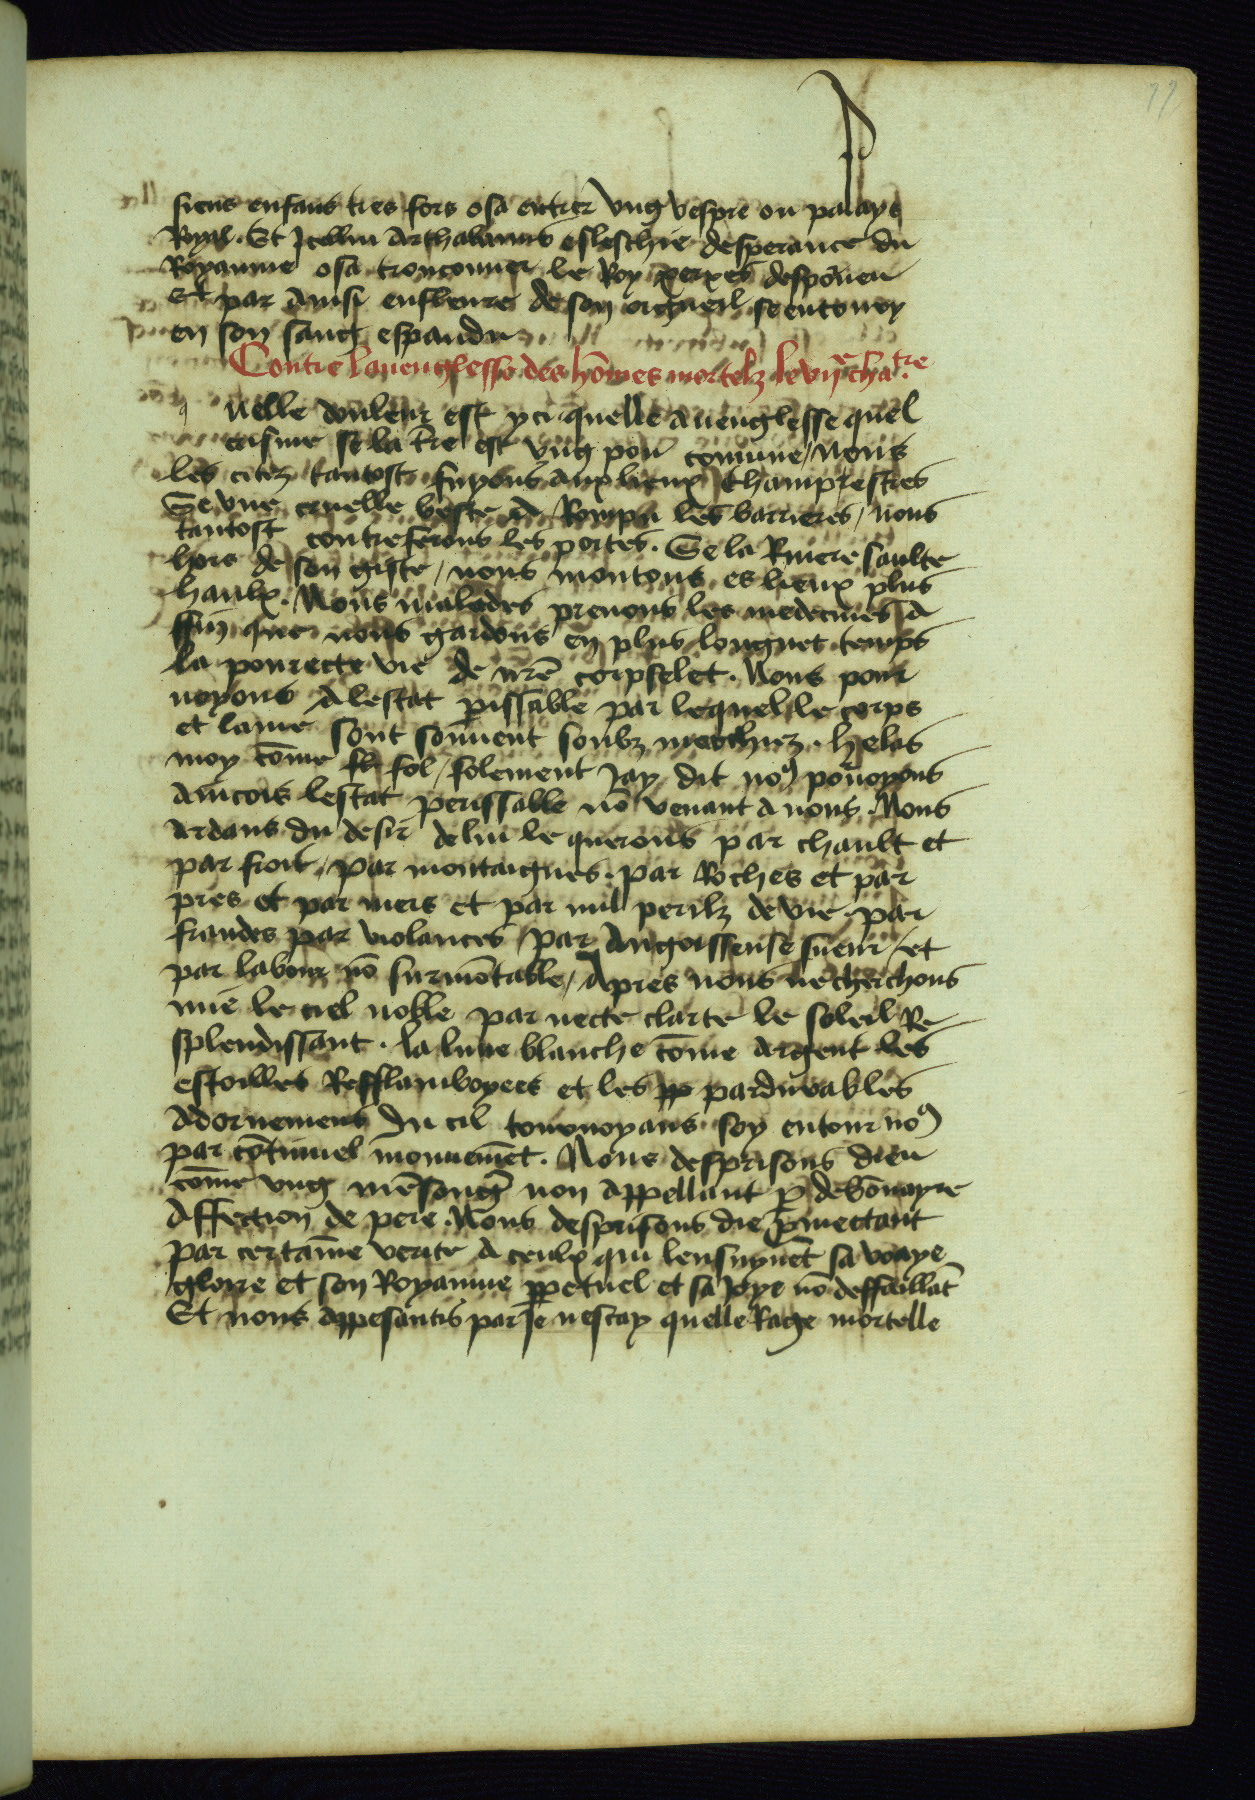 siens enfans tres fors osa entrer vng vespre ou palays
Royal. Et Jcellui Arthabanus esleschie desperance du
Royaume osa tronconner le Roy xerxes despoueu
Et par Ainsi enfleure de son orgueil se entouey
en son sang espandu
Contre laueuglesse des hōmes mortelz le vijᵉ cha.tre
uelle douleur est yci quelle Aueuglesse quel
se la tr̄e est vng pou comune / Nous
les citez tantost fuyons aux lieux Champestres
Se vne cruelle beste A Rompu les barrieres / nous
tantost contreferons les portes. Se la Riuiere saulte
hors de son giste / nous montons es lieux plus
haulx. Nous malades prenons les medecines A
ffin que nous gardons en plus longuet temps
la pourecte vie de nr̄e corpselet. Nous pour
uoyons A lestat perissable par lequel le corps
et lame sont souuent soubz marchiez. helas
moy cōme fol / folement Jay dit noꝰ pouoyons
Aincois lestat perissable nō venant a nous. Nous
Ardans du desir de lui le querons par chault et
par froit / par montaignes. par Roches et par
pres et par mers et par mil perilz de vie par
fraudes par violances / par Angoisseuse sueur / et
par labour nō surmōtable / Apres nous ne cherchons
mie le ciel noble par necte clarte le soleil Re
splendissant. la lune blanche cōme Argent les
estoilles Refflamboyees et les pp pardurables
Adornemens Du cil tournoyans soy entour noꝰ
par cōtinuel mouuemēt. Nous desprisons dieu
cōme vng mēsongr̄ non Appellant p debōnayre
Affection de pere. Nous desprisons die pmectant
par certaine verite A ceulx qui lensuyuēt sa vraye
gloire et son Royaume ppetuel et sa Joye nō deffaillāt
Et nous appesantis par Je nescay quelle Rage mortelle